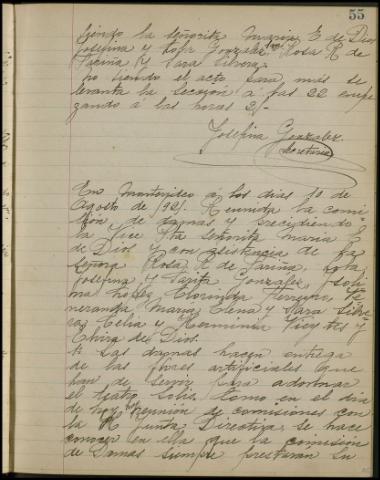 55
siendo la señorita Maria E de Dios
Josefina y Sofia Gonzalez Rosa R de
Farina y Sara Siberoz
no siendo el acto para más se
levanta la secsion á las 22 empe
zando á las horas 21.
Josefina Gonzalez
Secretaria
En Montevideo á los dias 10 de
Agosto de 1921. Reunida la comi
sión de damas y precidien do
la Vice Pta señorita Maria E
de Dios y con asistencia de las
señora Rosa R de Farina, Srta
Josefina y Gonzalez,
Clorinda Ferreyra,
Maria Elena y Sara Sibe
roz Celia y Herminia y
Elvira de Dios.
Las damas hacen entrega
de las flores artificiales que
han de servir para adornar
el teatro Solis. Como en el dia
de hoy hay reunión de comisiones con
la H Junta Directiva se hace
conocer en ella que la comisión
de Damas siempre prestaran su